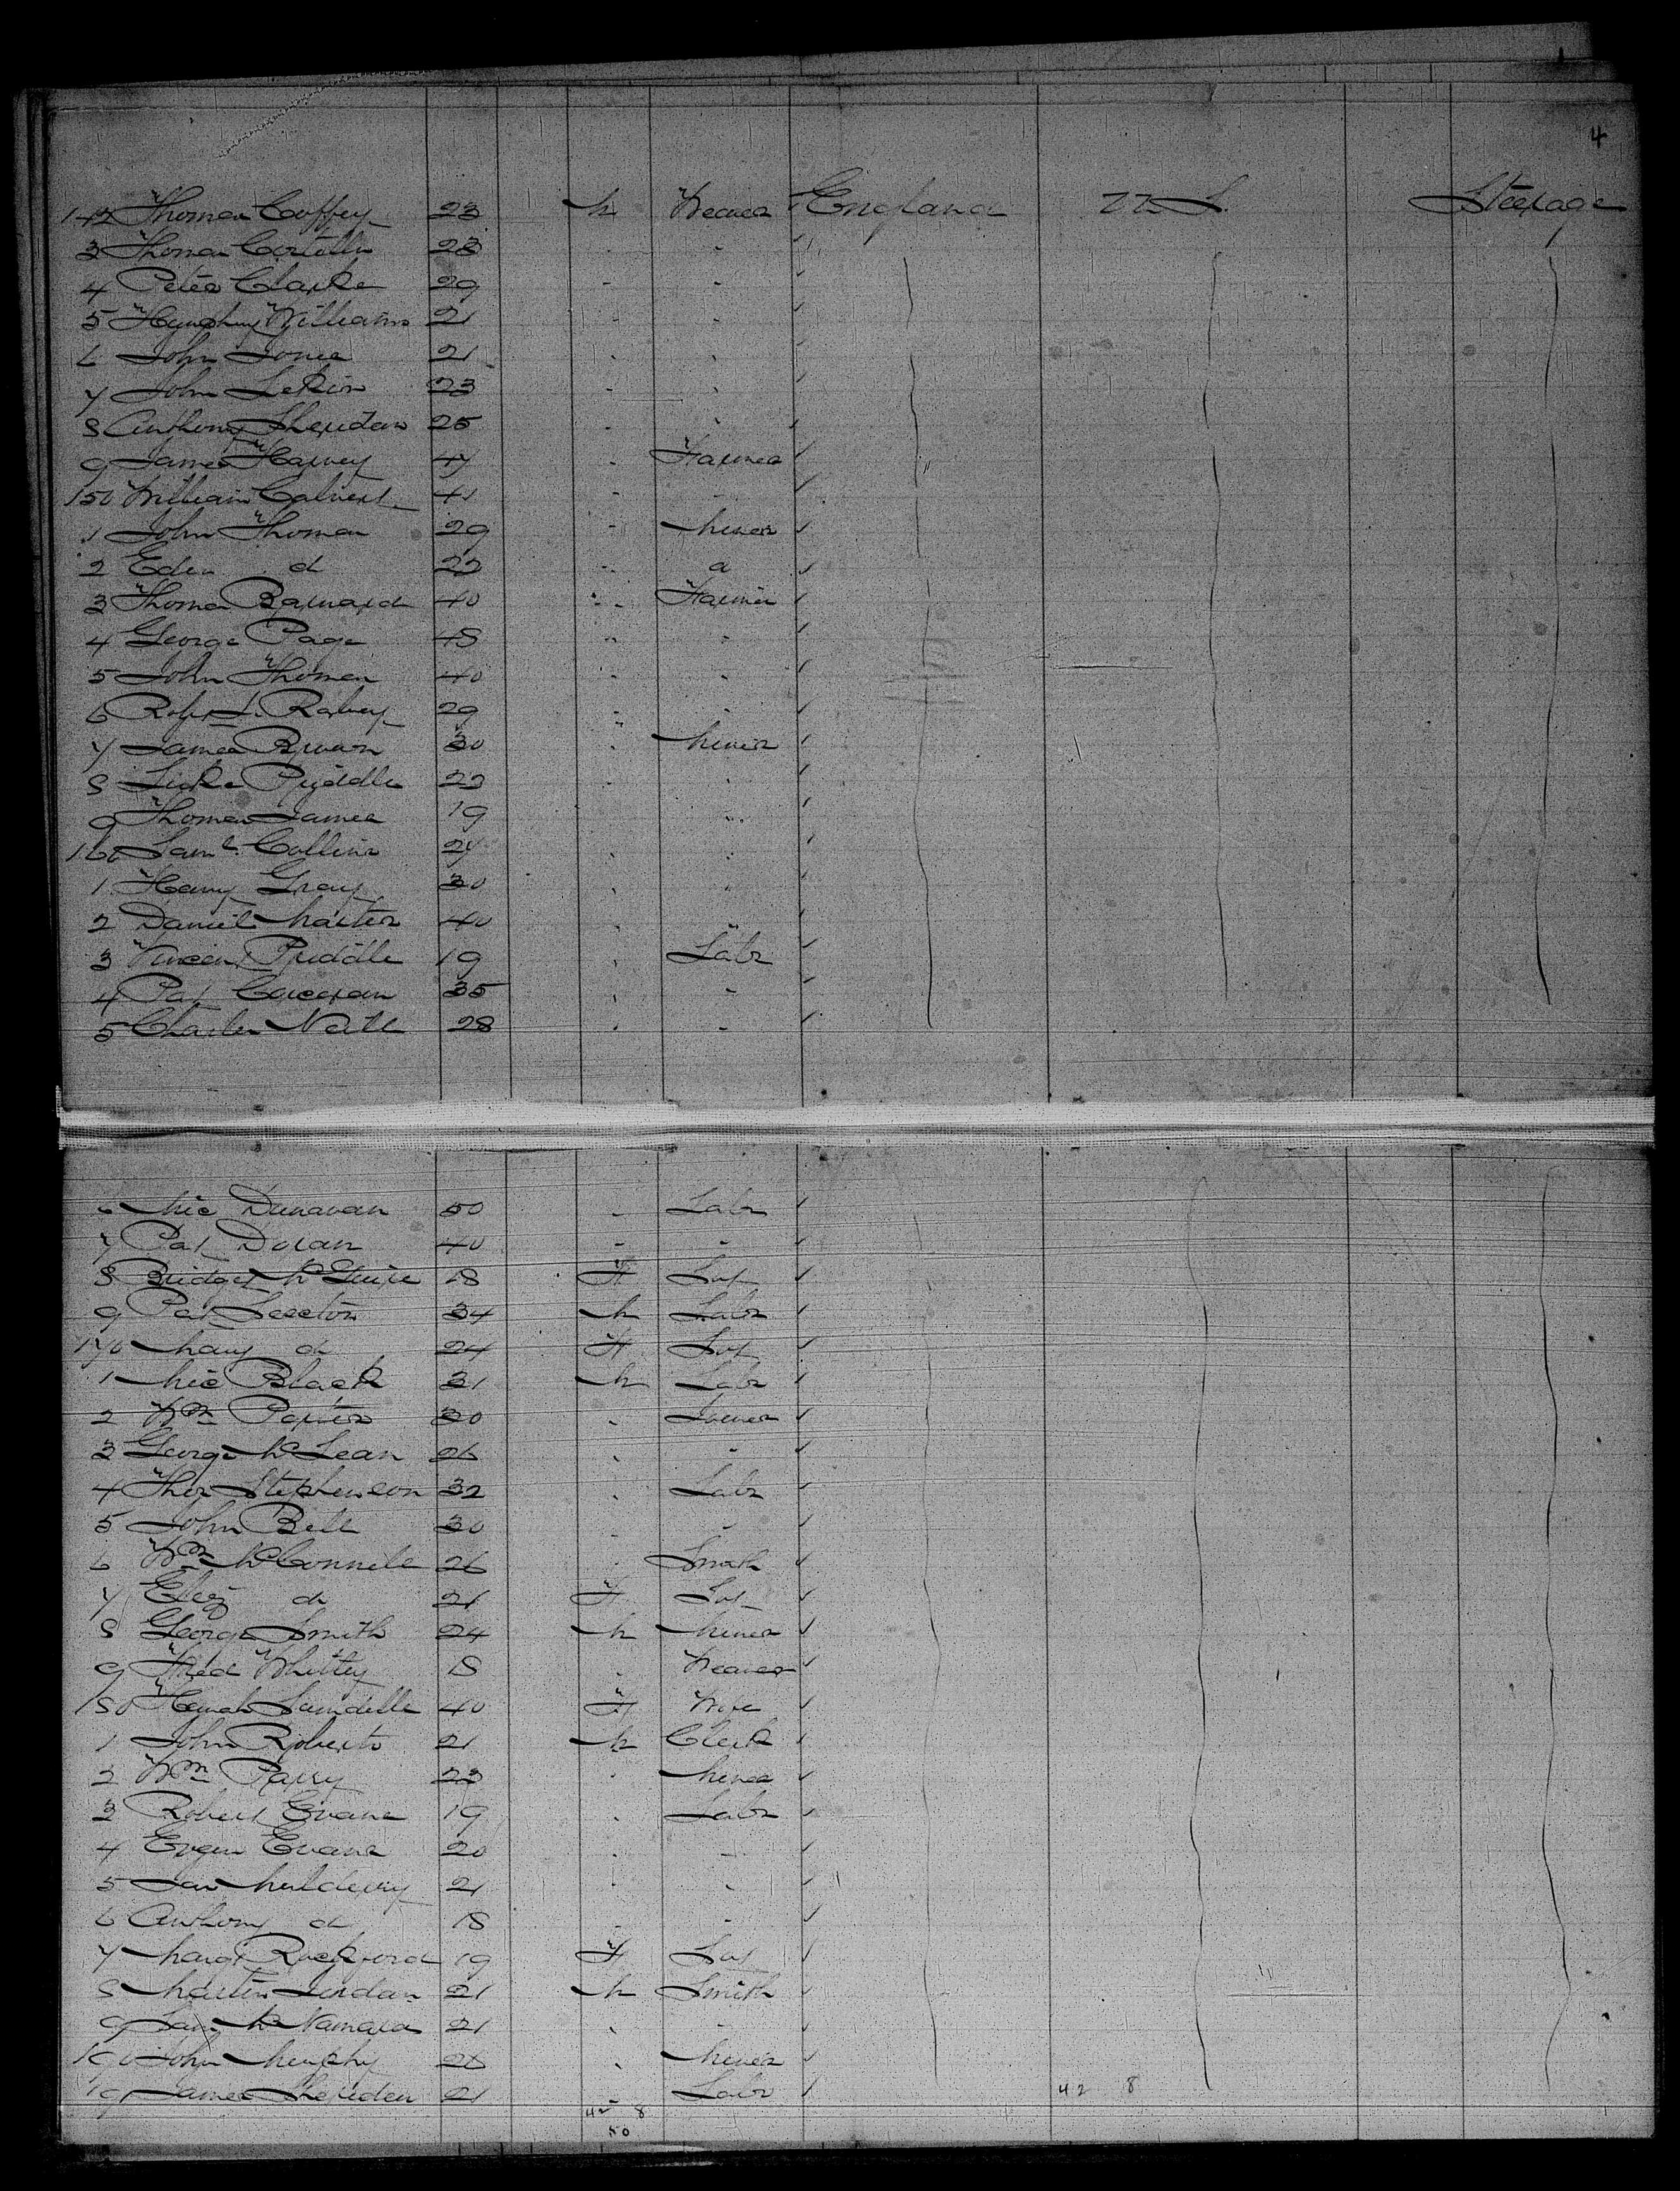 4
142 Thomas Coffey 23 M Weaver England U S. Steerage
3 Thomas Costello 28 " "
4 Peter Clarke 29 " "
5 Humphrey Williams 21 " "
6 John Jones 21 " "
7 John 23 " "
8 Anthony Sheridan 25 " "
9 James Harvey 47 " Farmer
150 William Calvert 41 " "
1 John Thomas 29 " Miner
2 Eden d 22 " d
3 Thomas Barnard 40 " Farmer
4 George Page 48 " "
5 John Thomas 40 " "
6 Robt J. 29 " "
7 James Brown 30 " Miner
8 Luke Priddle 22 " "
9 Thomas James 19 " "
160 Saml. Collins 27 " "
1 Harry Gray 30 " "
2 Daniel Martin 40 " "
3 Vincent Priddle 19 " Labr
4 Pat Corcoran 35 " "
5 Charles Neill 28 " "
6 Mic Dunavan 50 " Labr
7 Pat Doran 40 " "
8 Bridget McGuire 18 F
9 Pat 34 M Labr
170 Mary do 24 F
1 Mic Black 31 M Labr
2 Wm Porter 30 "
3 George McLean 26 " "
4 Thos Stephenson 32 " Labr
5 John Bell 30 " "
6 Wm McConnell 26 " Smith
7 Eliz do 21 F
8 George Smith 24 M Miner
9 Fred Whitley 18 " Weaver
180 Hannah 40 F Wife
1 John Roberts 21 M Clerk
2 Wm Parry 23 " Miner
3 Robert Evans 19 " Labr
4 Evan Evans 20 " "
5 Jas 21 " "
6 Anthony do 18 " "
7 Margt Rockford 19 F
8 Martin Jordan 21 M Smith
9 McNamara 21 " "
190 John Murphy 28 " Miner
191 James Sheridan 21 " Labr
42 8
42 8
50